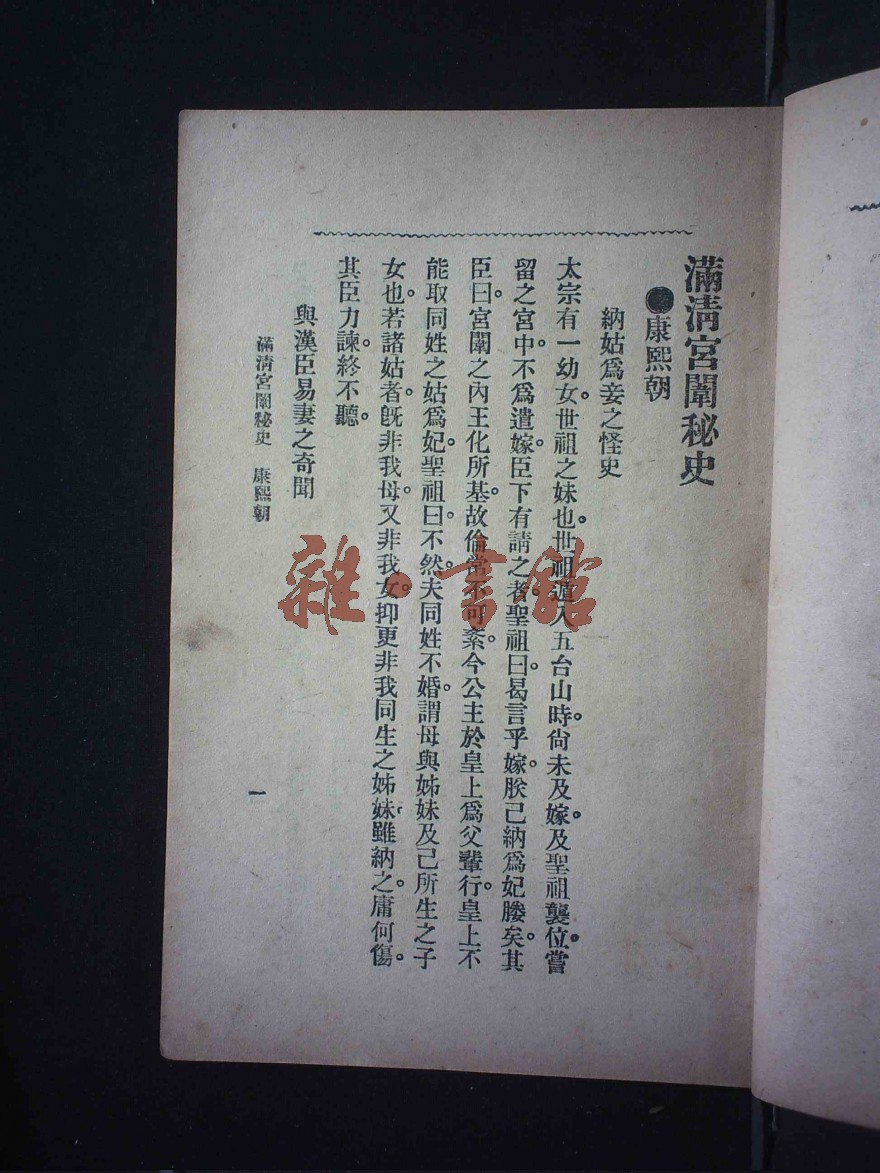 滿淸宮闈秘史
●康熙朝
納姑爲妾之怪史
太宗有一幼女。世祖之妹也。世祖遁入五台山時。尙未及嫁。及聖祖襲位。嘗
留之宮中。不爲遣嫁。臣下有請之者。聖祖曰。曷言乎嫁。朕已納爲妃媵矣。其
臣曰。宮闈之內。王化所基。故倫常不可紊。今公主於皇上爲父輩行。皇上不
能取同姓之姑爲妃。聖祖曰。不然。夫同姓不婚。謂母與姊妹及己所生之子
女也。若諸姑者。旣非我母。又非我女。抑更非我同生之姊妹。雖納之。庸何傷。
其臣力諫。終不聽。
與漢臣易妻之奇聞
滿淸宮闈秘史　康熙朝
一
雜·書館